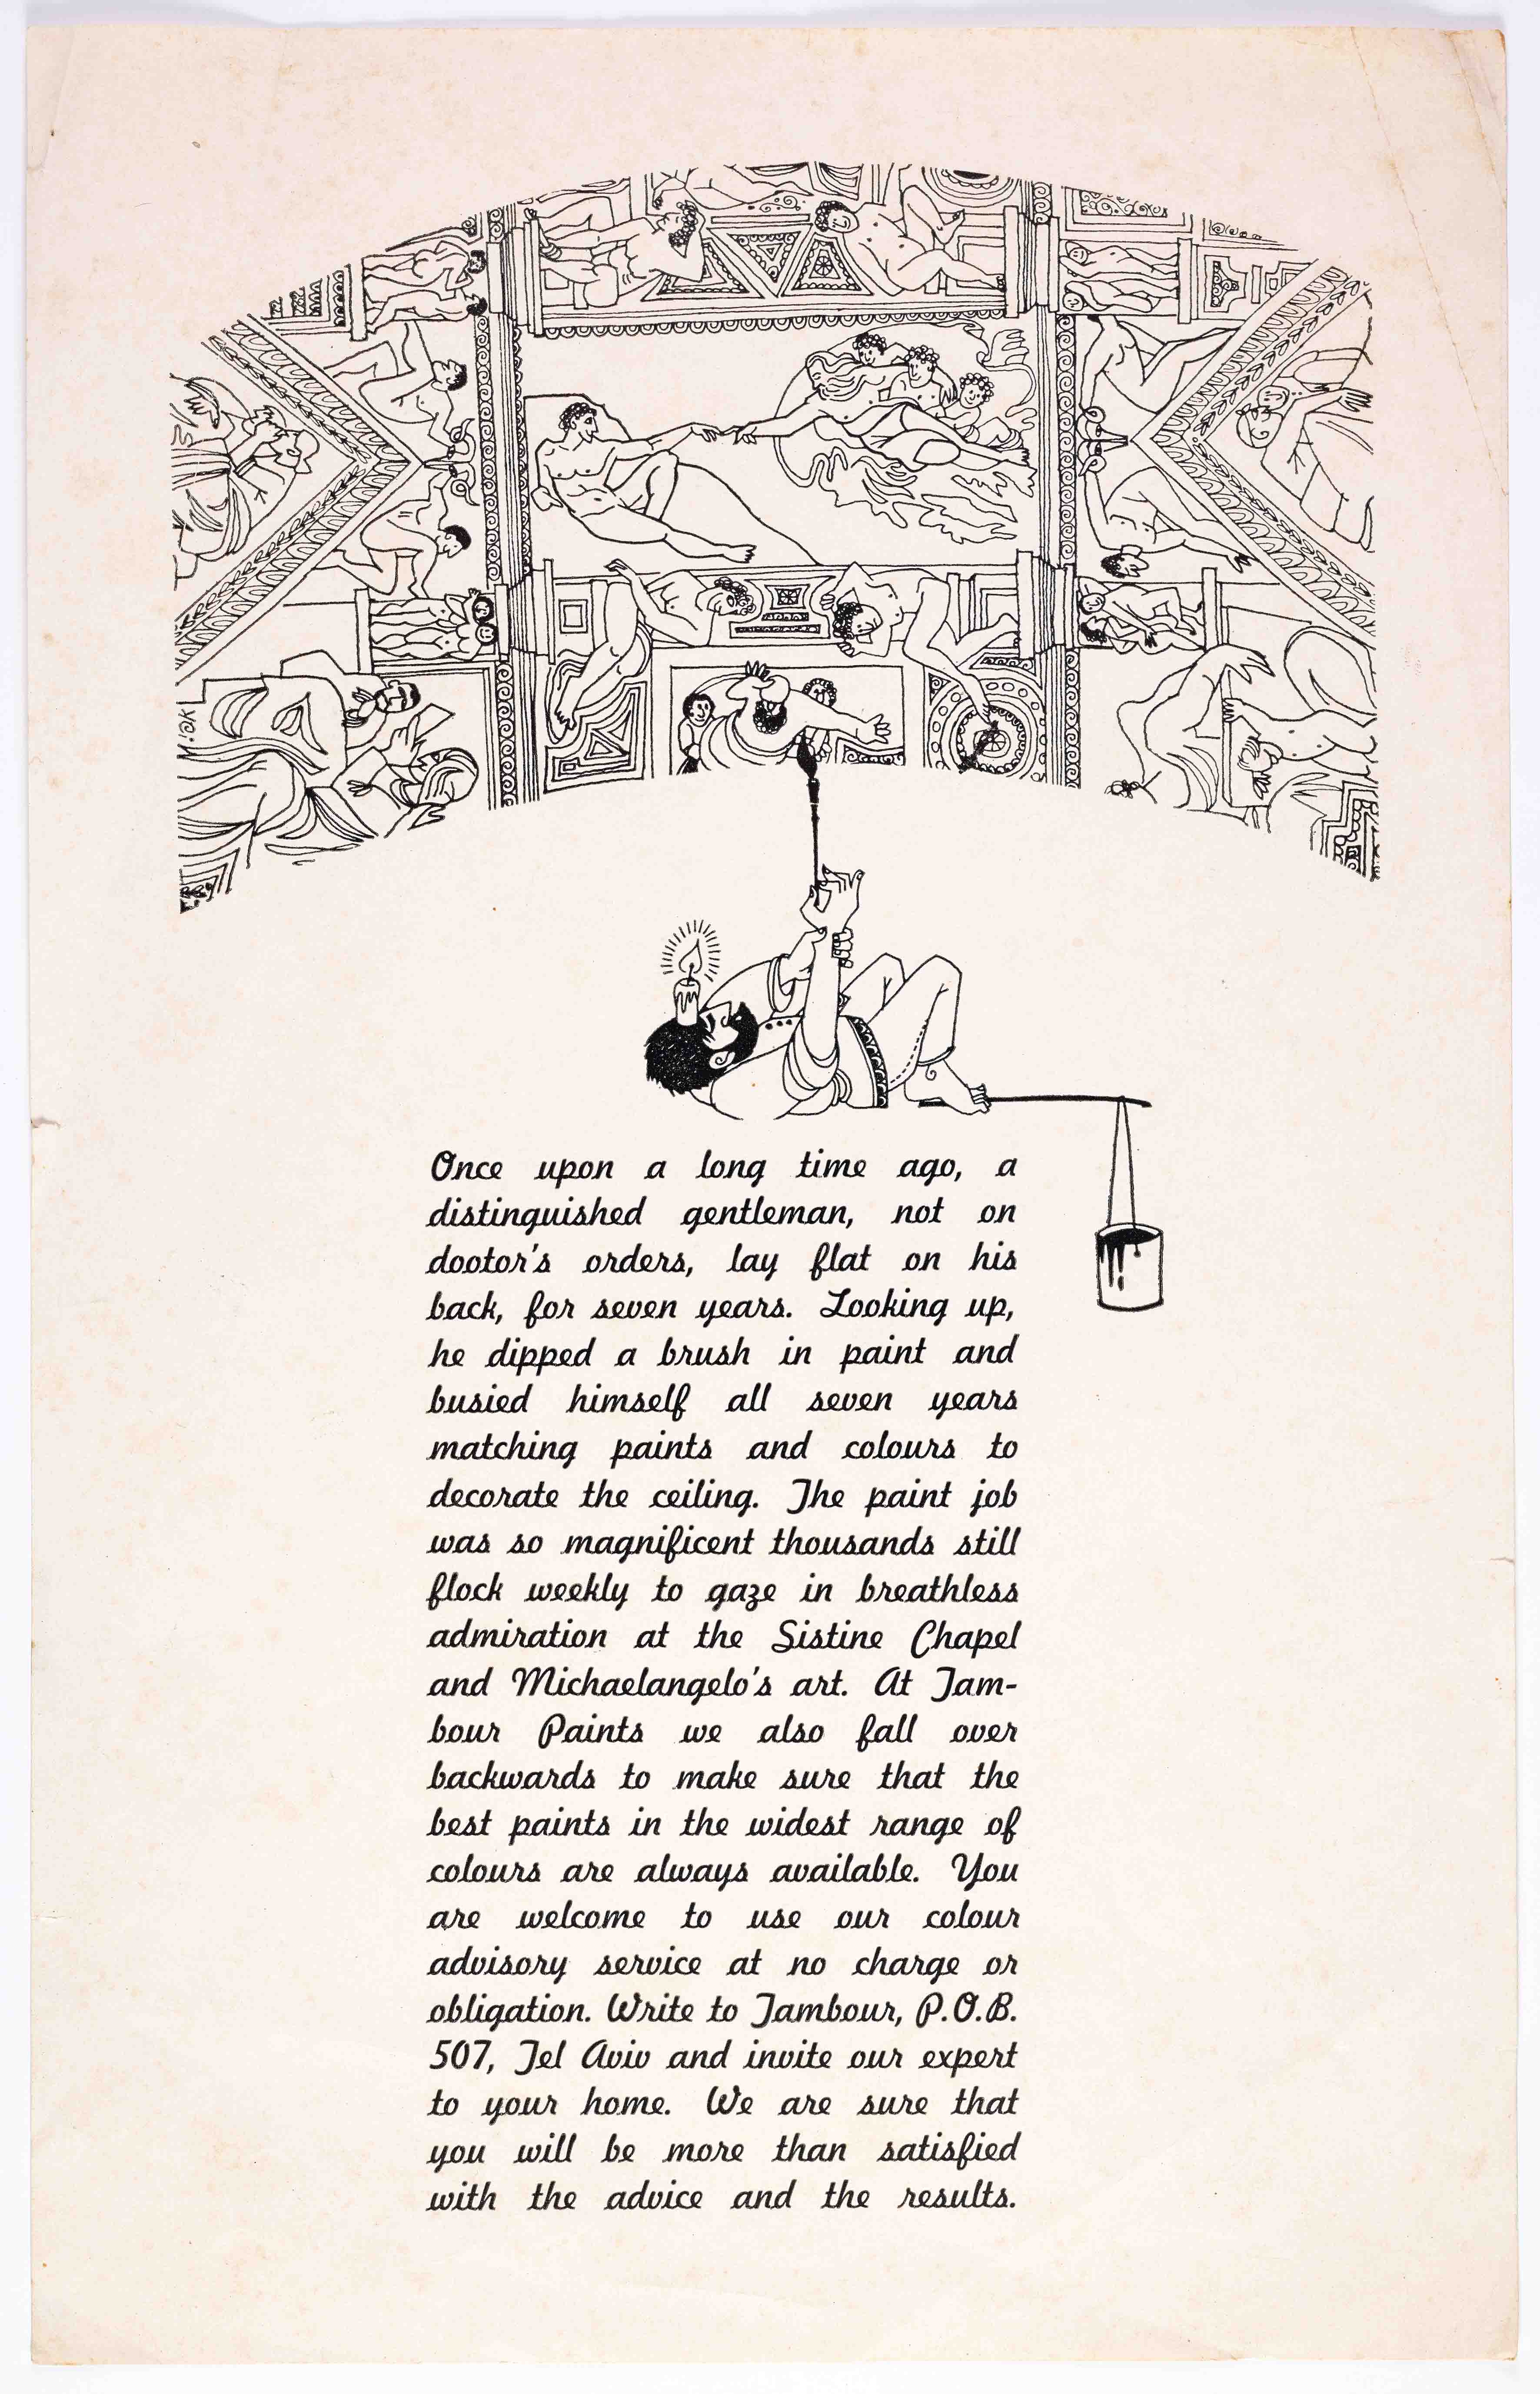 Once upon a long time ago, a
distinguished gentleman, not on
dootor's orders, lay flat on his
back, for seven years. Looking up,
he dipped a brush in paint and
busied himself all seven years
matching paints and colours to
decorate the ceiling. The paint job
was so magnificent thousands still
flock weekly to gaze in breathless
admiration at the Sistine Chapel
and Michaelangelo's art. At Tam-
bour Paints we also fall over
backwards to make sure that the
best paints in the widest range of
colours are always available. You
are welcome to use our colour
advisory service at no charge or
obligation. Write to Tambour, P.O.B.
507, Tel Aviv and invite our expert
to your home. We are sure that
you will be more than satisfied
with the advice and the results.